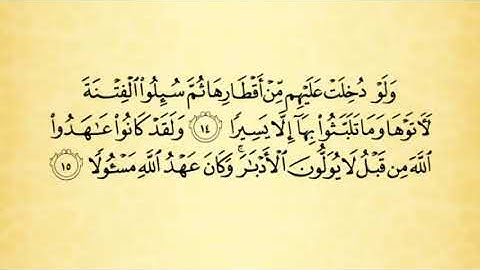 وَلَوْ دُخِلَتْ عَلَيْهِم مِّنْ أَقْطَارِهَا ثُمَّ سُئِلُوا۟ ٱلْفِتْنَةَ
لَـَٔاتَوْهَا وَمَا تَلَبَّثُوا۟ بِهَآ إِلَّا يَسِيرًا ١٤ وَلَقَدْ كَانُوا۟ عَـٰهَدُوا۟
ٱللَّهَ مِن قَبْلُ لَا يُوَلُّونَ ٱلْأَدْبَـٰرَ ۚ وَكَانَ عَهْدُ ٱللَّهِ مَسْـُٔولًا ١٥